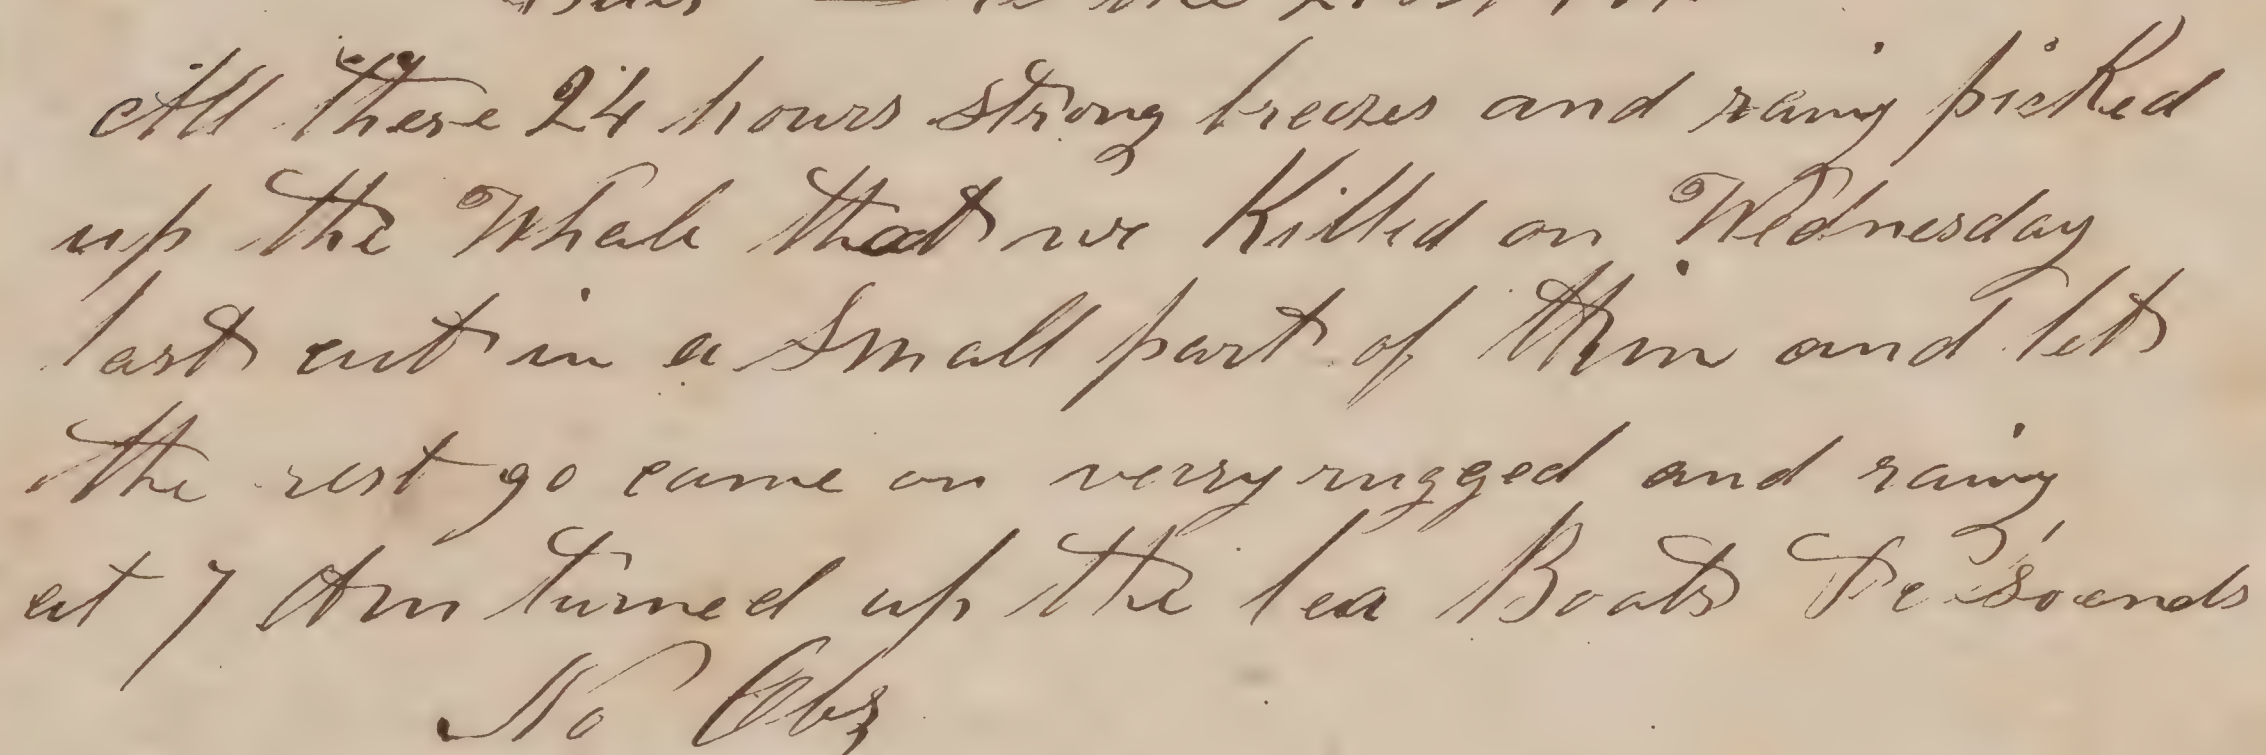 All these 24 hours strong breezes and rainy picked
up the Whale that we Killed on Wednesday
last cut in a Small part of thim and let
the rest go came on verry rugged and rainy
at 7 Am turned up the lea Boats So ends
No Obs